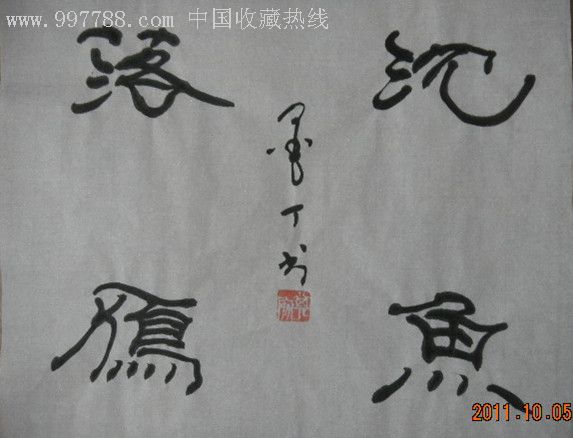 www.997788.com 中国收藏热线
沉魚
落鴈
墨丁书
2011.10.05